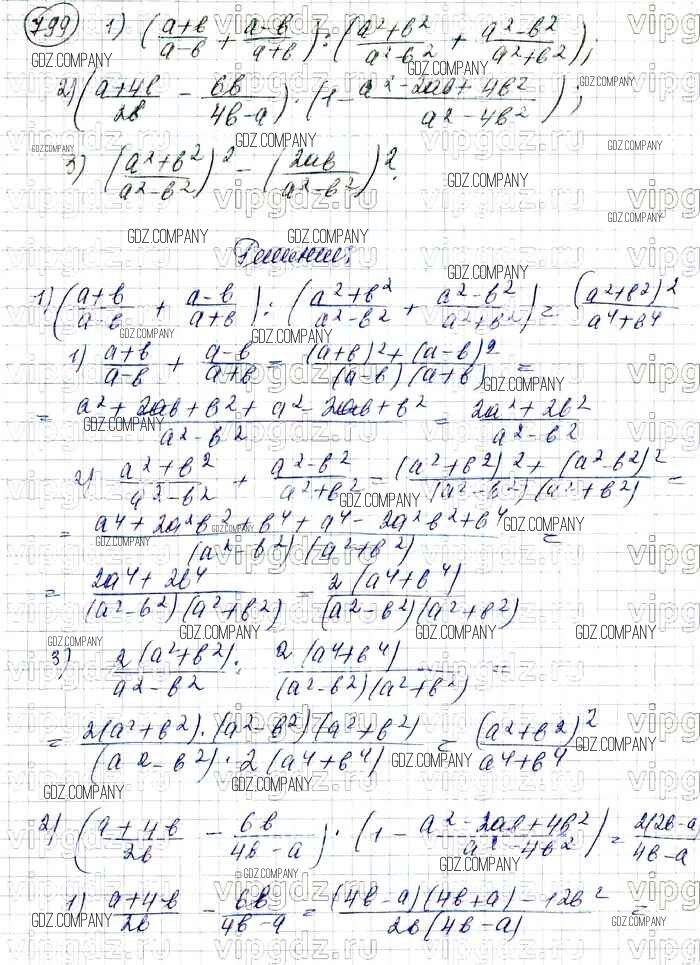 799) 1) ((a+b)/(a-b) + (a-b)/(a+b)) : ((a²+b²)/(a²-b²) + (a²-b²)/(a²+b²));
2) ((a+4b)/2b - 6b/(4b-a)) · (1 - (a²-2ab+4b²)/(a²-4b²));
3) ((a²+b²)/(a²-b²))² - (2ab/(a²-b²))².
Решение:
1) ((a+b)/(a-b) + (a-b)/(a+b)) : ((a²+b²)/(a²-b²) + (a²-b²)/(a²+b²)) = (a²+b²)²/(a⁴+b⁴)
1) (a+b)/(a-b) + (a-b)/(a+b) = ((a+b)²+(a-b)²)/((a-b)(a+b)) =
= (a²+2ab+b²+a²-2ab+b²)/(a²-b²) = (2a²+2b²)/(a²-b²)
2) (a²+b²)/(a²-b²) + (a²-b²)/(a²+b²) = ((a²+b²)²+(a²-b²)²)/((a²-b²)(a²+b²)) =
= (a⁴+2a²b²+b⁴+a⁴-2a²b²+b⁴)/((a²-b²)(a²+b²)) =
= (2a⁴+2b⁴)/((a²-b²)(a²+b²)) = 2(a⁴+b⁴)/((a²-b²)(a²+b²))
3) 2(a²+b²)/(a²-b²) : 2(a⁴+b⁴)/((a²-b²)(a²+b²)) =
= 2(a²+b²)·(a²-b²)(a²+b²)/((a²-b²)·2(a⁴+b⁴)) = (a²+b²)²/(a⁴+b⁴)
2) ((a+4b)/2b - 6b/(4b-a)) · (1 - (a²-2ab+4b²)/(a²-4b²)) = 2(2b-a)/(4b-a)
1) (a+4b)/2b - 6b/(4b-a) = ((4b-a)(4b+a)-12b²)/(2b(4b-a)) =
GDZ.COMPANY
vipgdz.ru